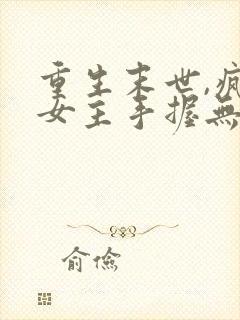 重生末世,疯
女主手握無
俞俭